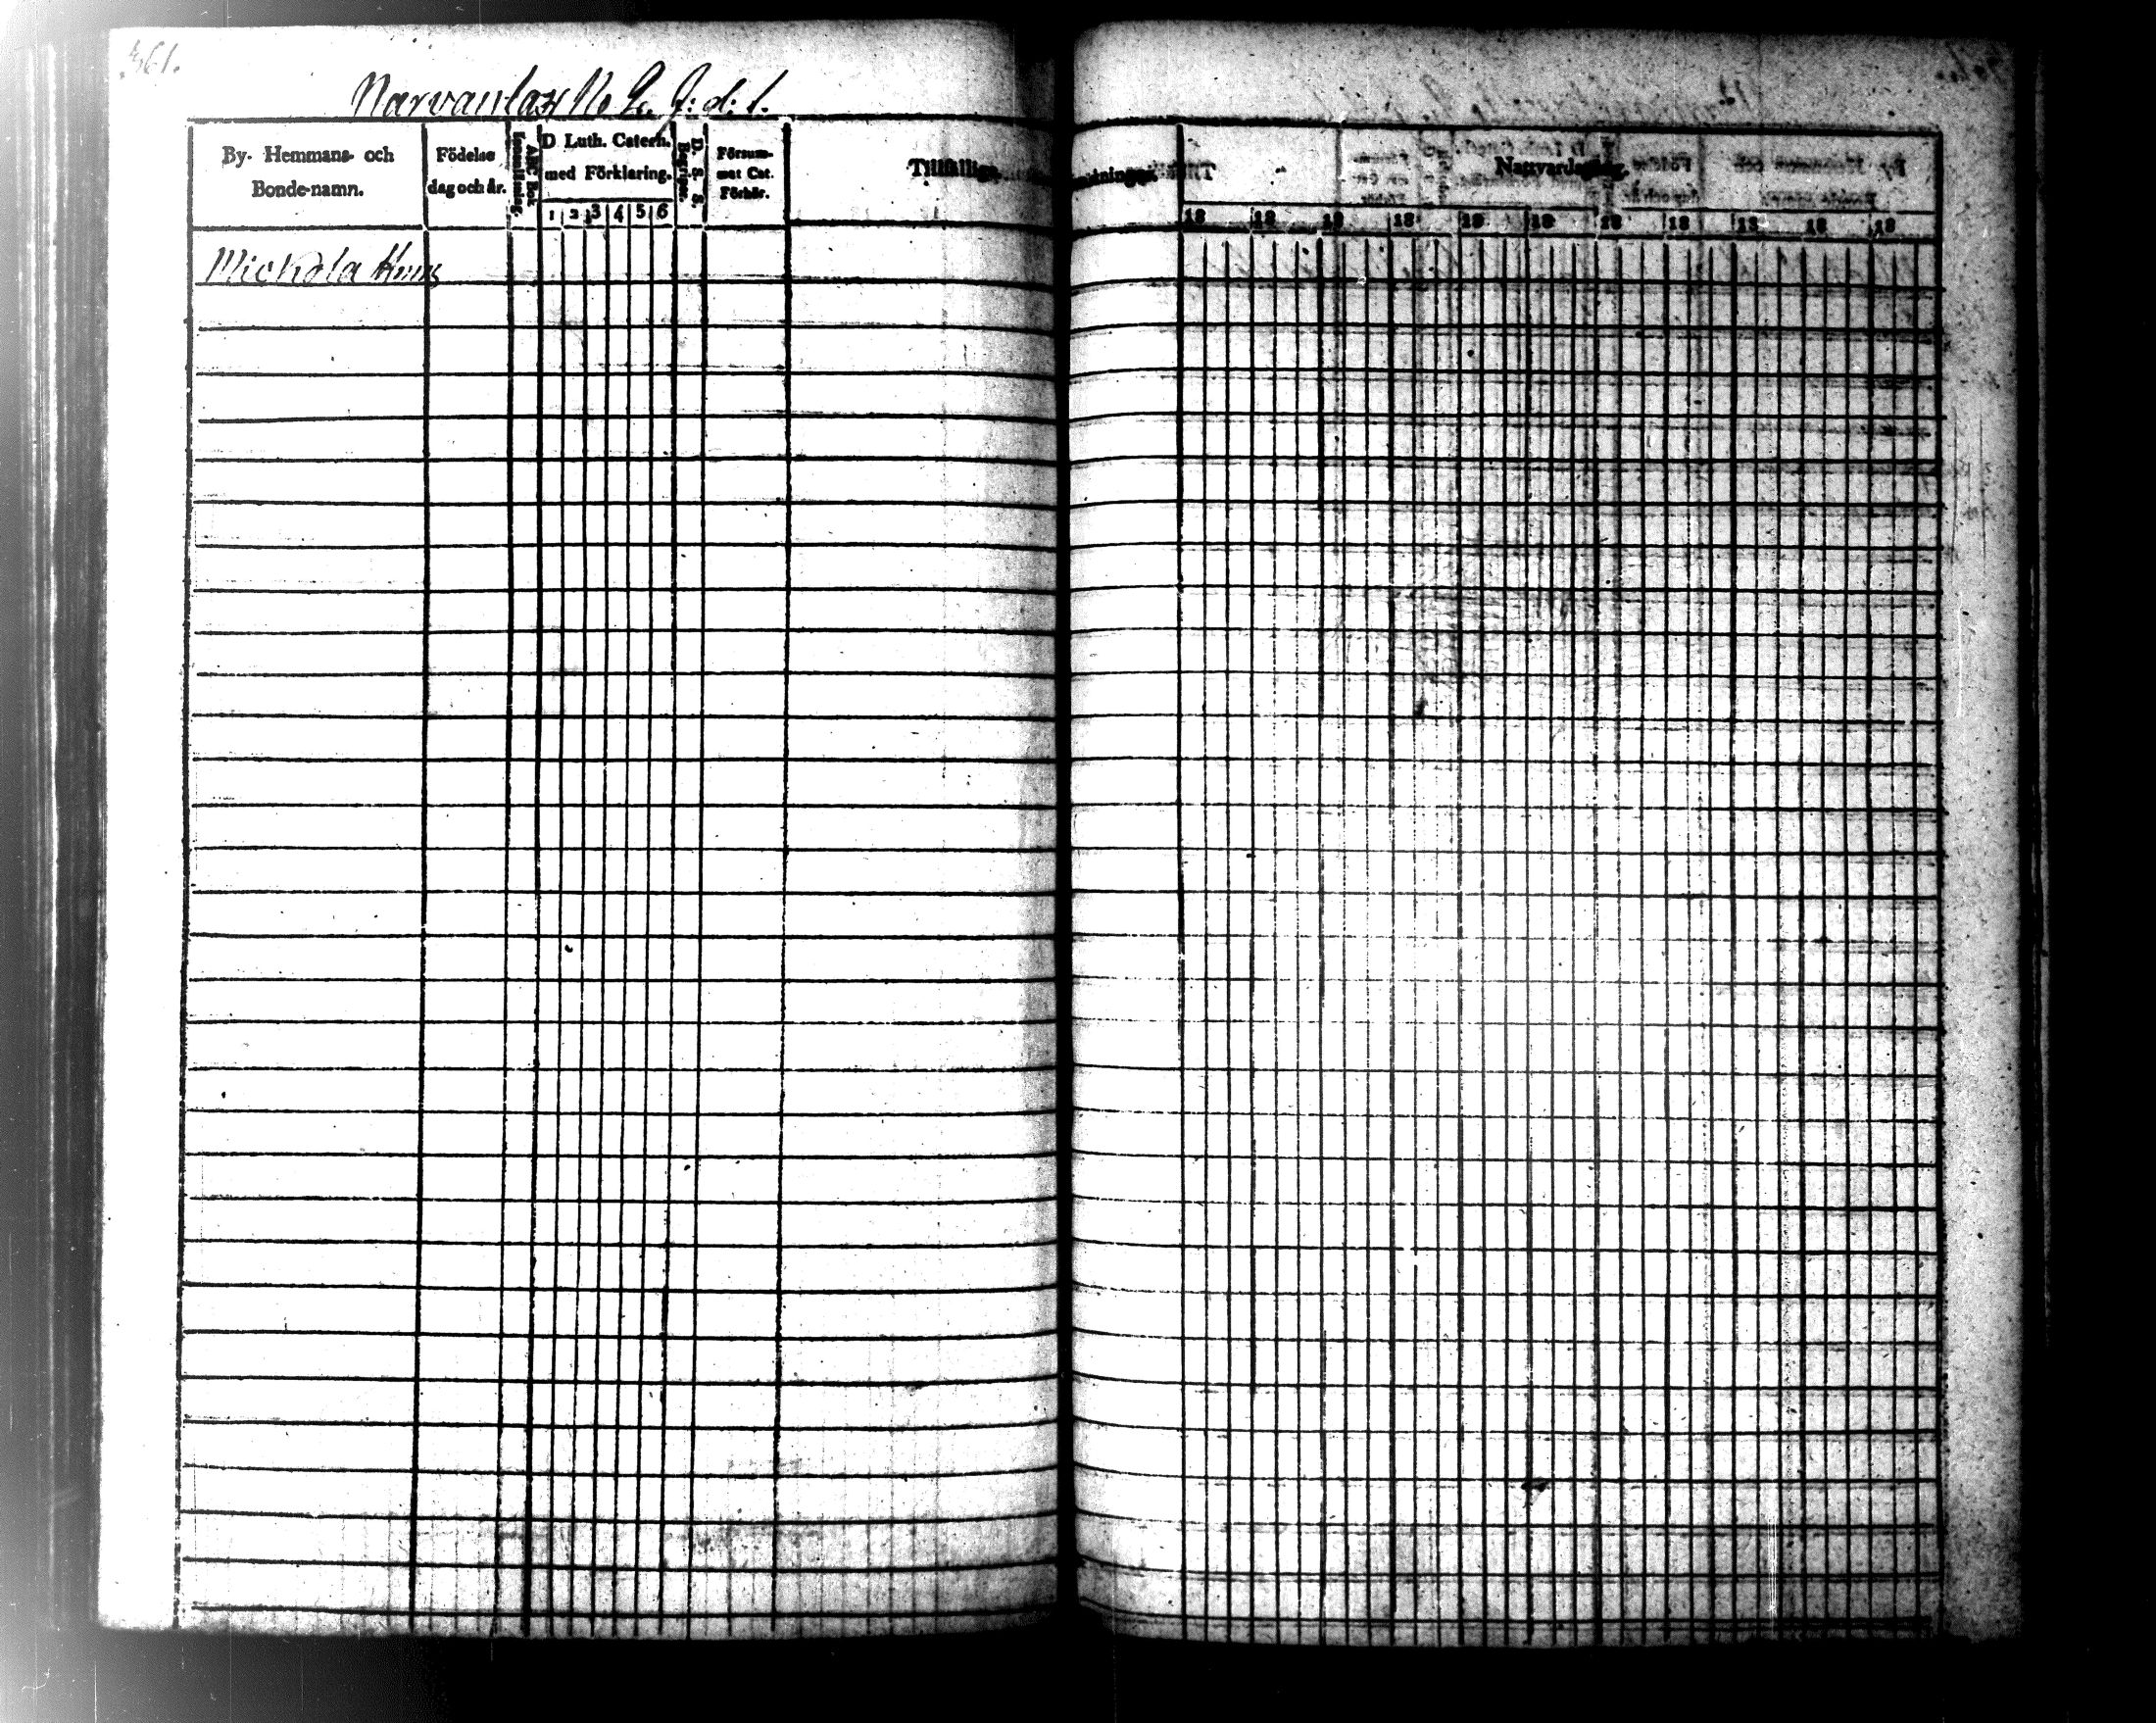 361.
Narvanlax No 2. J: d: 1.
By- Hemmans- och Bonde-namn.
Födelse dag och år.
ABC Bok
Innanläsning.
D Luth. Catech. med Förklaring.
1 2 3 4 5 6
D. S. S.
Begripe.
Försummat Cat. Förhör.
Tillfällige
Nattvardsgång.
18 18 18 18 18 18 18 18 18 18 18
Mickola